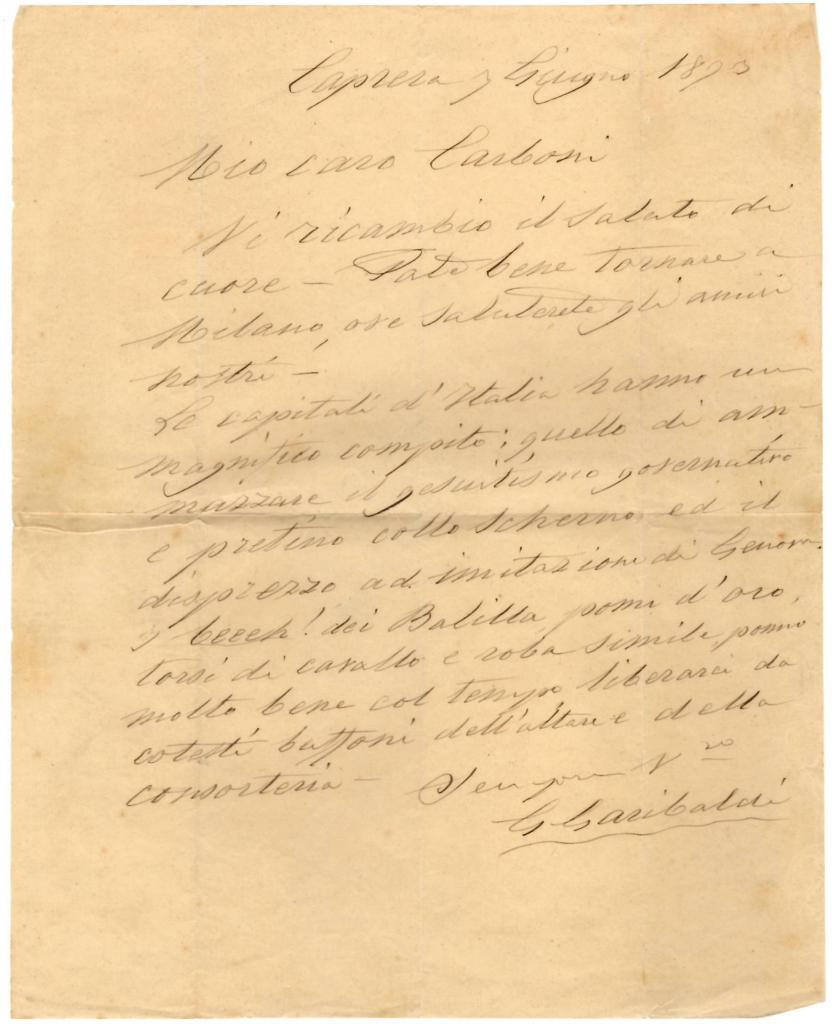 Caprera 7 Giugno 1873
Mio caro Carboni
Vi ricambio il saluto di
cuore – Fate bene tornare a
Milano, ove saluterete gli amici
nostri –
Le capitali d'Italia hanno un
magnifico compito: quello di am-
mazzare il gesuitismo governativo
e pretino collo scherno, ed il
disprezzo ad imitazione di Genova.
I beech! dei Balilla pomi d'oro,
torsi di cavallo e roba simile, ponno
molto bene col tempo liberarci da
cotesti buffoni dell'altare e della
consorteria –
Sempre Vro
G Garibaldi